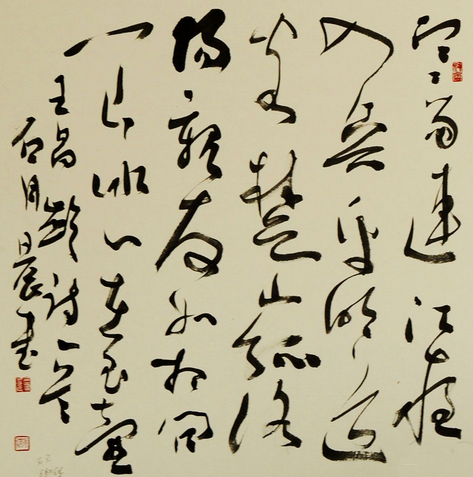 寒雨連江夜
入吴平明送
客楚山孤洛
陽親友如相问
一片冰心在玉壺
王昌龄诗一首
石月晨书